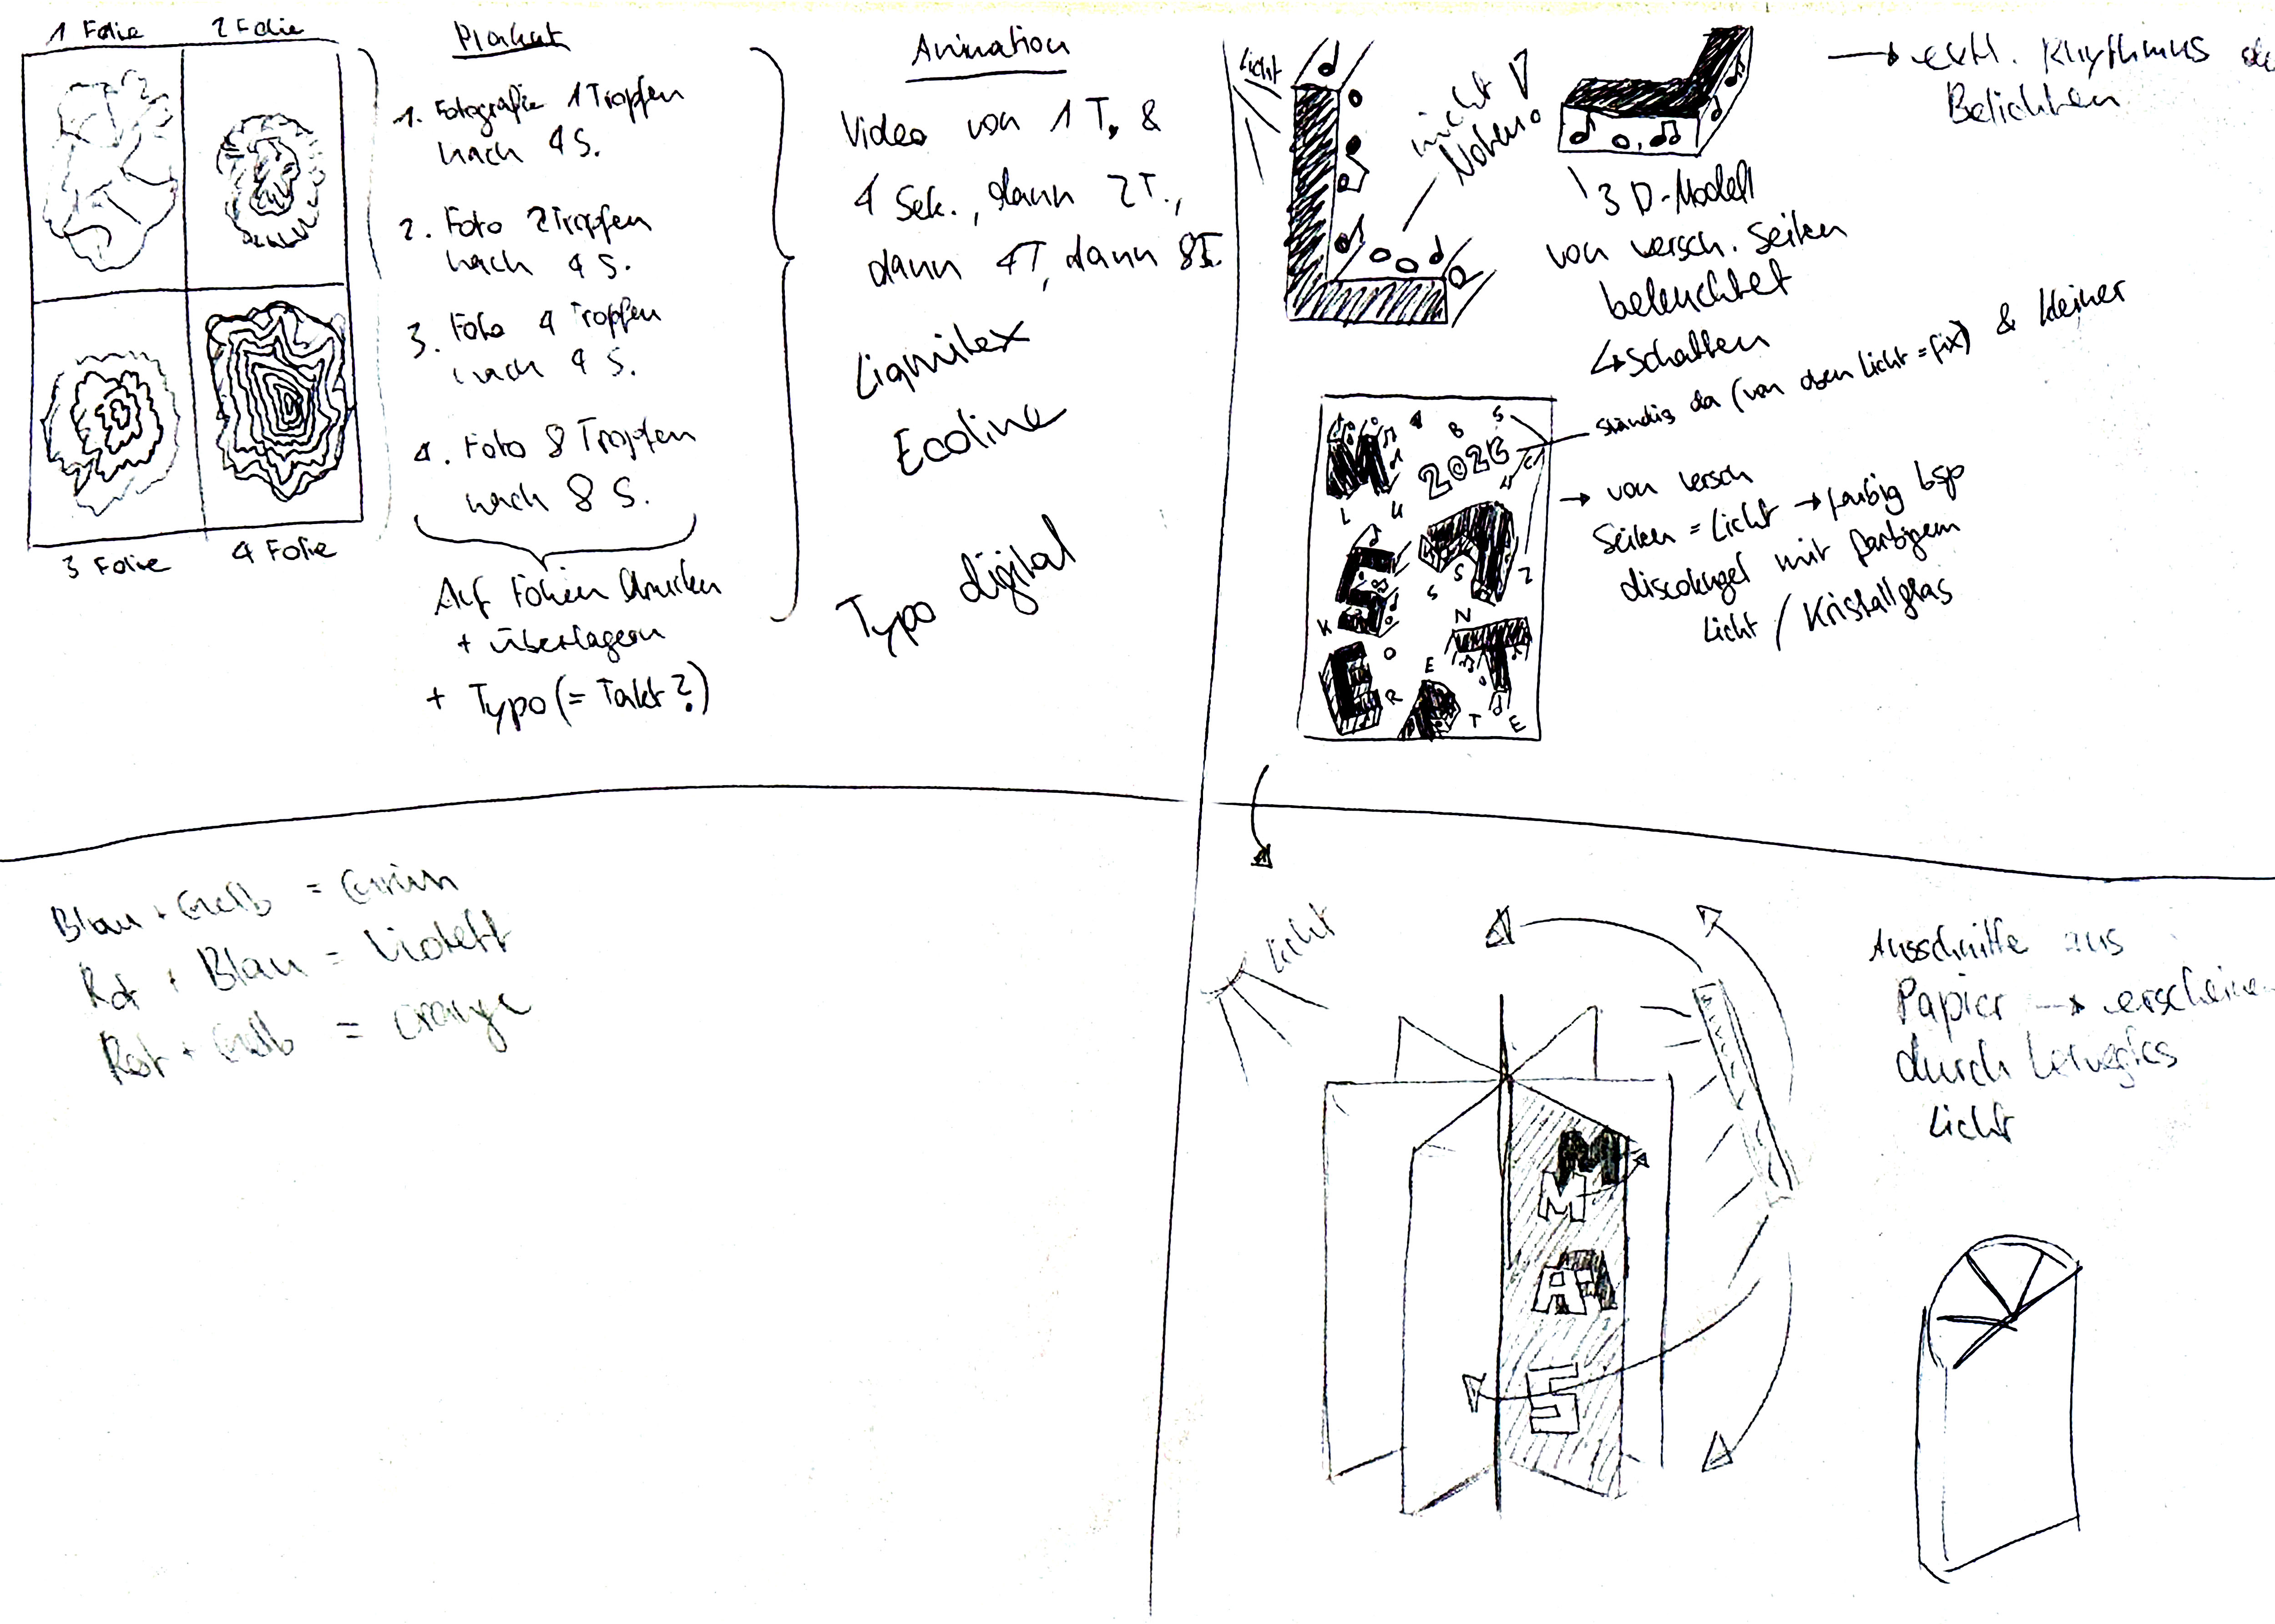 1 Folie
2 Folie
3 Folie
4 Folie
Plakat
1. Fotografie 1 Tropfen
nach 4 S.
2. Foto 2 Tropfen
nach 4 S.
3. Foto 4 Tropfen
nach 4 S.
4. Foto 8 Tropfen
nach 8 S.
Auf Folien drucken
+ überlagern
+ Typo (= Takt?)
Animation
Video von 1 T. &
4 Sek., dann 2T.,
dann 4T, dann 8T.
Liquitex
Ecoline
Typo digital
Licht
nicht
Noten!
3D-Modell
von versch. Seiten
beleuchtet
↳ Schatten
ständig da (von oben Licht = fix) & kleiner
→ evtl. Rhythmus
Belichten
→ von versch
Seiten = Licht → farbig bsp
discokugel mit farbigem
Licht / Kristallglas
M
A B S
2026
C H
L U
S
S S
Z
K
N
T
E
O
E
R
R
T
E
Blau + Gelb = Grün
Rot + Blau = Violett
Rot + Gelb = Orange
Licht
M
M
A
S
Ausschnitte aus
Papier →
durch
Licht